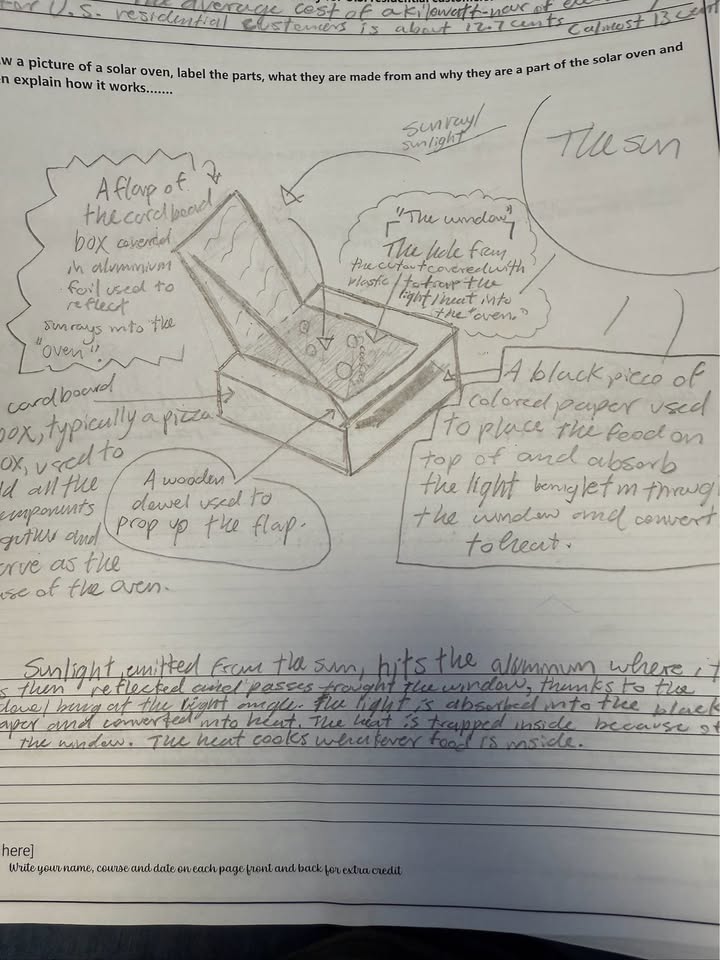 The average cost of a kilowatt-hour of
for U.S. residential customers is about 12.7 cents (almost 13 cent
w a picture of a solar oven, label the parts, what they are made from and why they are a part of the solar oven and
n explain how it works.......
sunray/
sunlight
The sun
A flap of
the cardboard
box covered
in aluminium
foil used to
reflect
sunrays into the
"oven".
"The window"
The hole from
the cutout covered with
plastic to trap the
light/heat into
the "oven."
cardboard
box, typically a pizza
ox, used to
ld all the
omponents
gether and
erve as the
ase of the oven.
A wooden
dowel used to
prop up the flap.
A black piece of
colored paper used
to place the food on
top of and absorb
the light being let in throug
the window and convert
to heat.
Sunlight, emitted from the sun, hits the aluminum where it
s then reflected and passes trought the window, thanks to the
dowel being at the right angle. The light is absorbed into the black
aper and converted into heat. The heat is trapped inside because of
the window. The heat cooks whatever food is inside.
here]
Write your name, course and date on each page front and back for extra credit